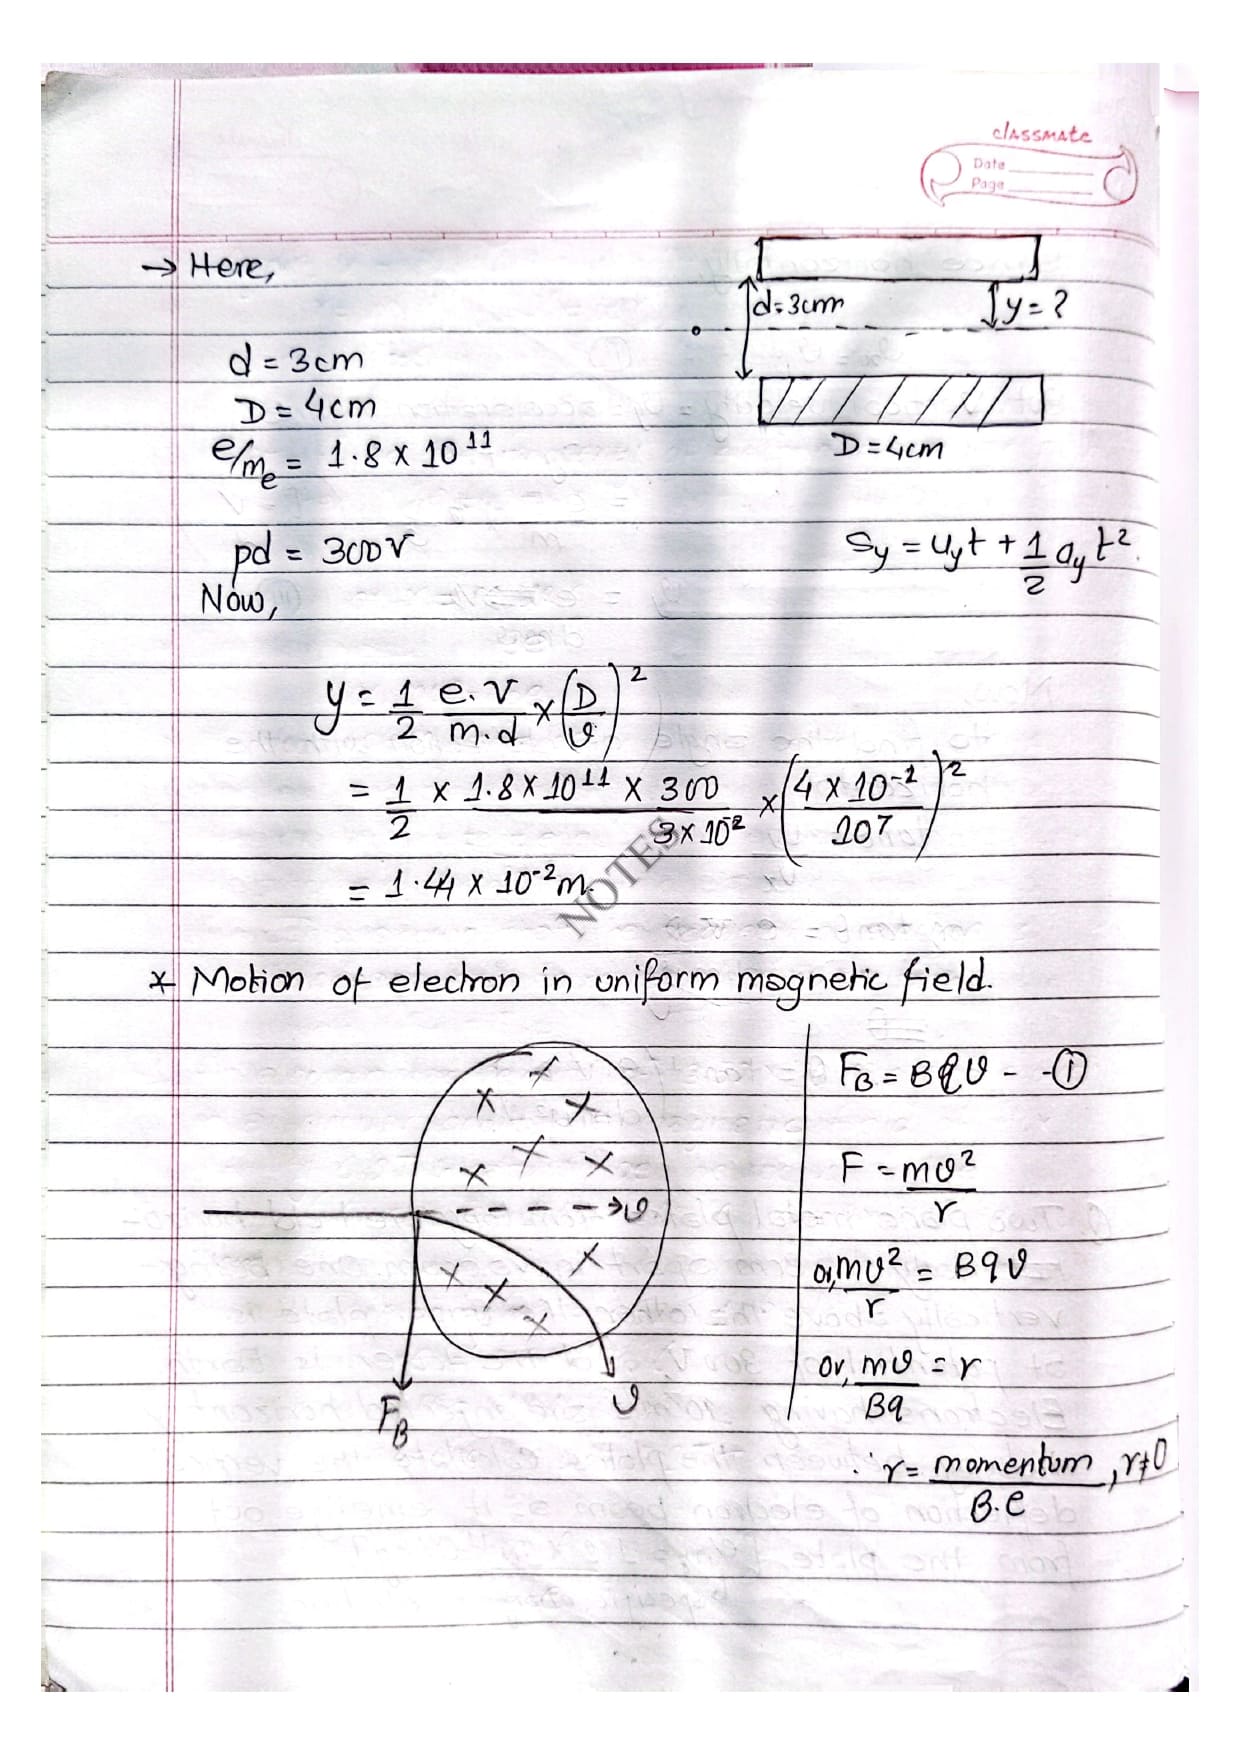 classmate
Date
Page
→ Here,
d = 3cm
y = ?
d = 3cm
D = 4cm
D = 4cm
e/mₑ = 1.8 x 10¹¹
pd = 300V
Sy = uyt + 1/2 ayt².
Now,
y = 1/2 e.V/m.d x (D/v)²
= 1/2 x 1.8 x 10¹¹ x 300/3 x 10⁻² x (4 x 10⁻²/10⁷)²
= 1.44 x 10⁻²m.
NOTES
* Motion of electron in uniform magnetic field.
F_B = Bqv - - ①
F = mv²/r
v
or, mv²/r = Bqv
or, mv/Bq = r
F_B
v
∴ r = momentum/B.e, r≠0